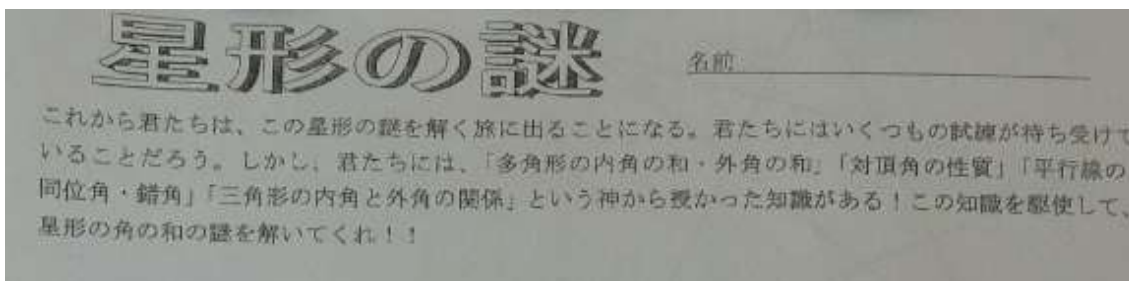 星形の謎
名前
これから君たちは、この星形の謎を解く旅に出ることになる。君たちにはいくつもの試練が待ち受けて
いることだろう。しかし、君たちには、「多角形の内角の和・外角の和」「対頂角の性質」「平行線の
同位角・錯角」「三角形の内角と外角の関係」という神から授かった知識がある！この知識を駆使して、
星形の角の和の謎を解いてくれ！！